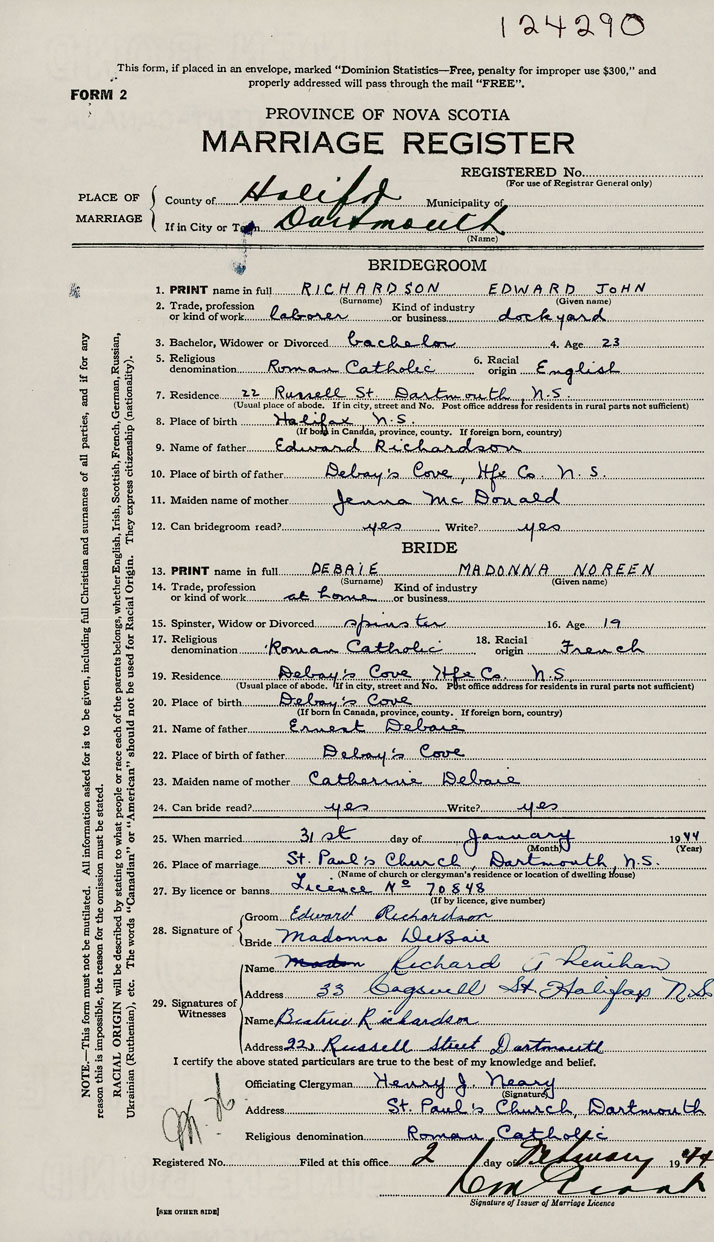 124290
This form, if placed in an envelope, marked "Dominion Statistics—Free, penalty for improper use $300," and
properly addressed will pass through the mail "FREE".
FORM 2
PROVINCE OF NOVA SCOTIA
MARRIAGE REGISTER
REGISTERED No.
(For use of Registrar General only)
PLACE OF MARRIAGE
County of Halifax Municipality of
If in City or Town Dartmouth
(Name)
BRIDEGROOM
1. PRINT name in full RICHARDSON EDWARD JOHN
(Surname) (Given name)
2. Trade, profession or kind of work laborer Kind of industry or business dockyard
3. Bachelor, Widower or Divorced bachelor 4. Age 23
5. Religious denomination Roman Catholic 6. Racial origin English
7. Residence 22 Russell St. Dartmouth N.S.
(Usual place of abode. If in city, street and No. Post office address for residents in rural parts not sufficient)
8. Place of birth Halifax N.S.
(If born in Canada, province, county. If foreign born, country)
9. Name of father Edward Richardson
10. Place of birth of father Debay's Cove, Hfe Co. N.S.
11. Maiden name of mother Jenna McDonald
12. Can bridegroom read? yes Write? yes
BRIDE
13. PRINT name in full DEBAIE MADONNA NOREEN
(Surname) (Given name)
14. Trade, profession or kind of work at home Kind of industry or business
15. Spinster, Widow or Divorced spinster 16. Age 19
17. Religious denomination Roman Catholic 18. Racial origin French
19. Residence Debay's Cove Hfe Co. N.S
(Usual place of abode. If in city, street and No. Post office address for residents in rural parts not sufficient)
20. Place of birth Debay's Cove
(If born in Canada, province, county. If foreign born, country)
21. Name of father Ernest Debaie
22. Place of birth of father Debay's Cove
23. Maiden name of mother Catherine Debaie
24. Can bride read? yes Write? yes
25. When married 31st day of January 1944
(Month) (Year)
26. Place of marriage St. Paul's Church, Dartmouth, N.S.
(Name of church or clergyman's residence or location of dwelling house)
27. By licence or banns Licence No 70848
(If by licence, give number)
28. Signature of
Groom Edward Richardson
Bride Madonna DeBaie
29. Signatures of Witnesses
Name Richard Lenihan
Address 33 Cogswell St. Halifax N.S
Name Beatrice Richardson
Address 22, Russell Street Dartmouth
I certify the above stated particulars are true to the best of my knowledge and belief.
Officiating Clergyman Henry J. Neary
(Signature)
Address St. Paul's Church, Dartmouth
Religious denomination Roman Catholic
Registered No. Filed at this office 2 day of February 1944
Signature of Issuer of Marriage Licence
[SEE OTHER SIDE]
NOTE.—This form must not be mutilated. All information asked for is to be given, including full Christian and surnames of all parties, and if for any
reason this is impossible, the reason for the omission must be stated.
RACIAL ORIGIN will be described by stating to what people or race each of the parents belongs, whether English, Irish, Scottish, French, German, Russian,
Ukrainian (Ruthenian), etc. The words "Canadian" or "American" should not be used for Racial Origin. They express citizenship (nationality).